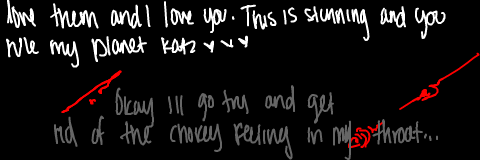 love them and I love you. This is stunning and you
rule my planet Katz v v v
Okay I'll go try and get
rid of the chokey feeling in my throat...